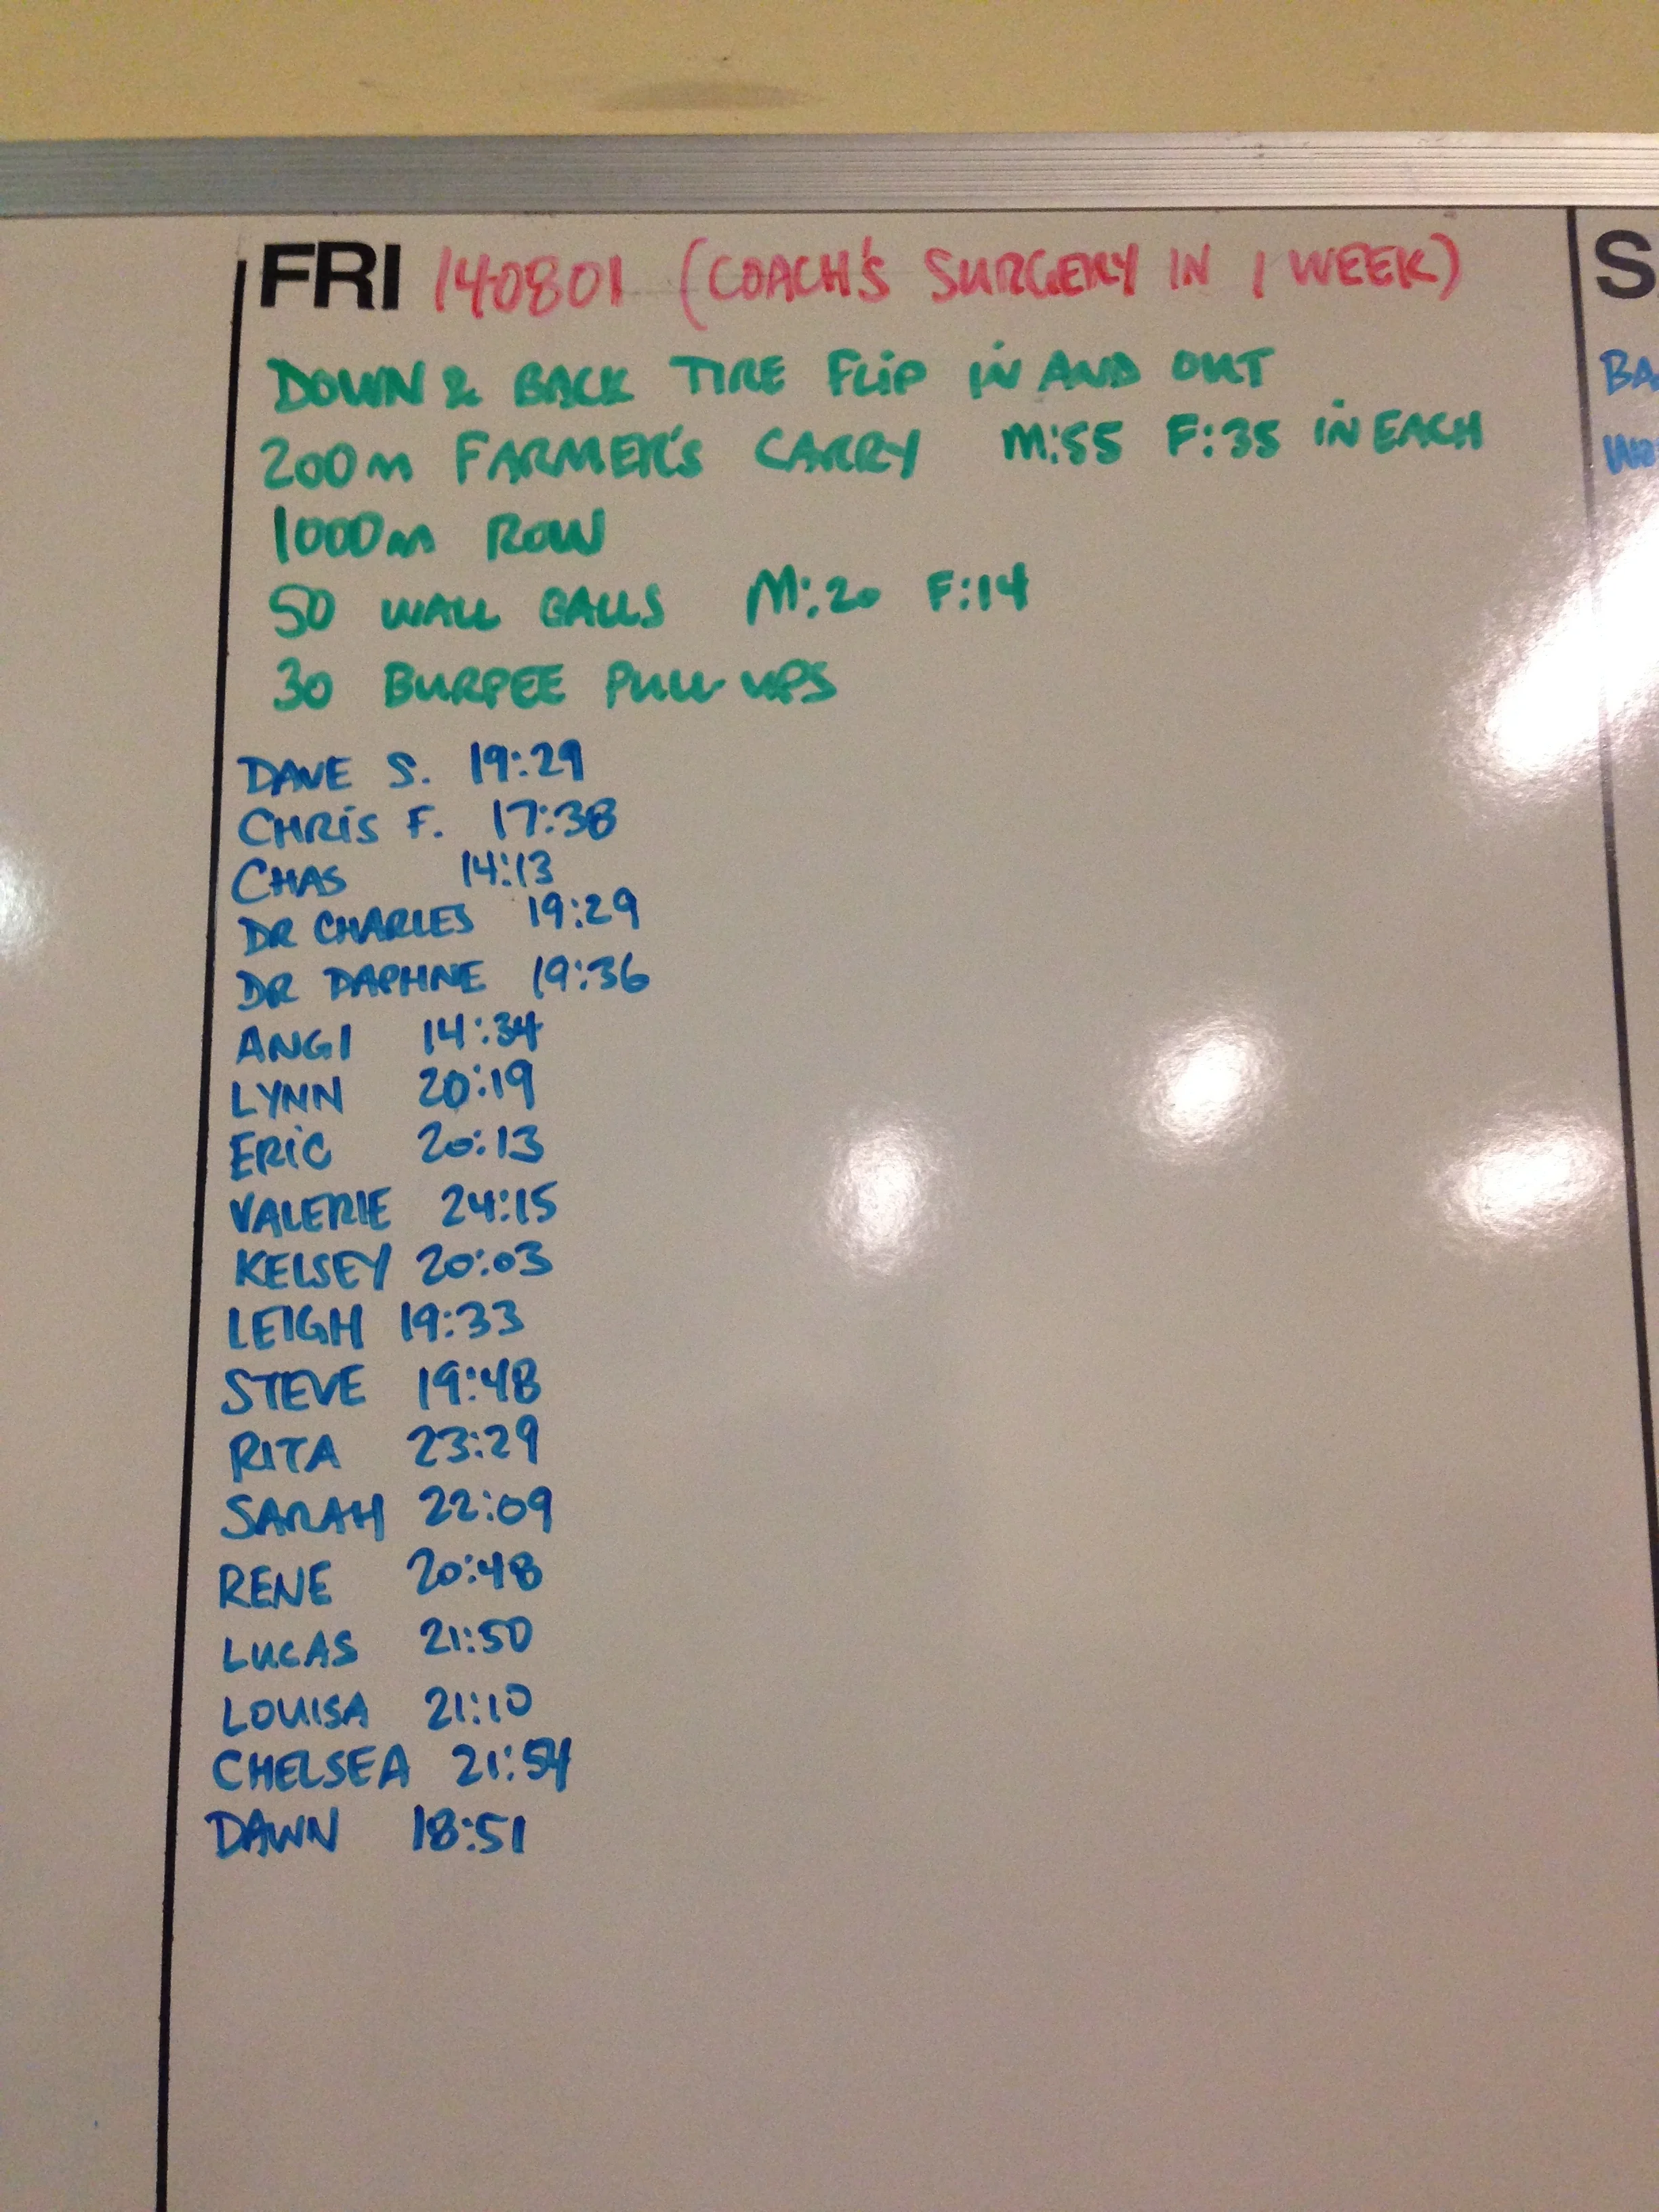 FRI 140801 (COACH'S SURGERY IN 1 WEEK)
DOWN & BACK TIRE FLIP IN AND OUT
200m FARMER'S CARRY M:55 F:35 IN EACH
1000m ROW
50 WALL BALLS M:20 F:14
30 BURPEE PULL-UPS
DAVE S. 19:29
CHRIS F. 17:38
CHAS 14:13
DR CHARLES 19:29
DR DAPHNE 19:36
ANGI 14:34
LYNN 20:19
ERIC 20:13
VALERIE 24:15
KELSEY 20:03
LEIGH 19:33
STEVE 19:48
RITA 23:29
SARAH 22:09
RENE 20:48
LUCAS 21:50
LOUISA 21:10
CHELSEA 21:54
DAWN 18:51
S
BA